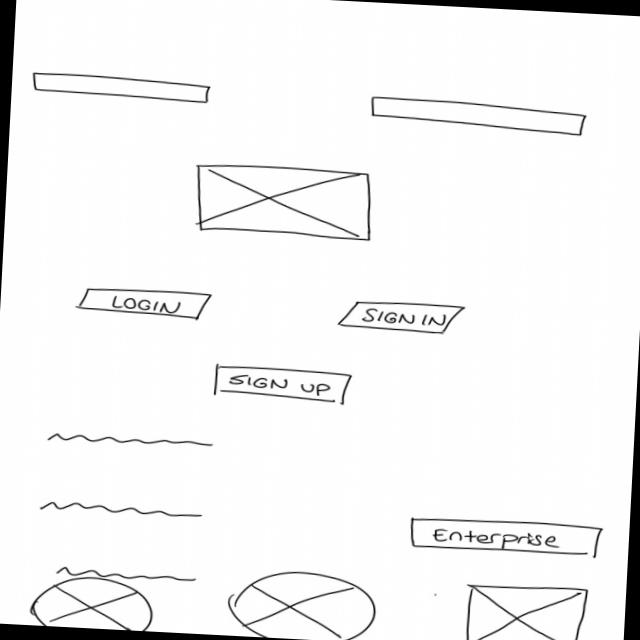 LOGIN
SIGN IN
SIGN UP
Enterprise